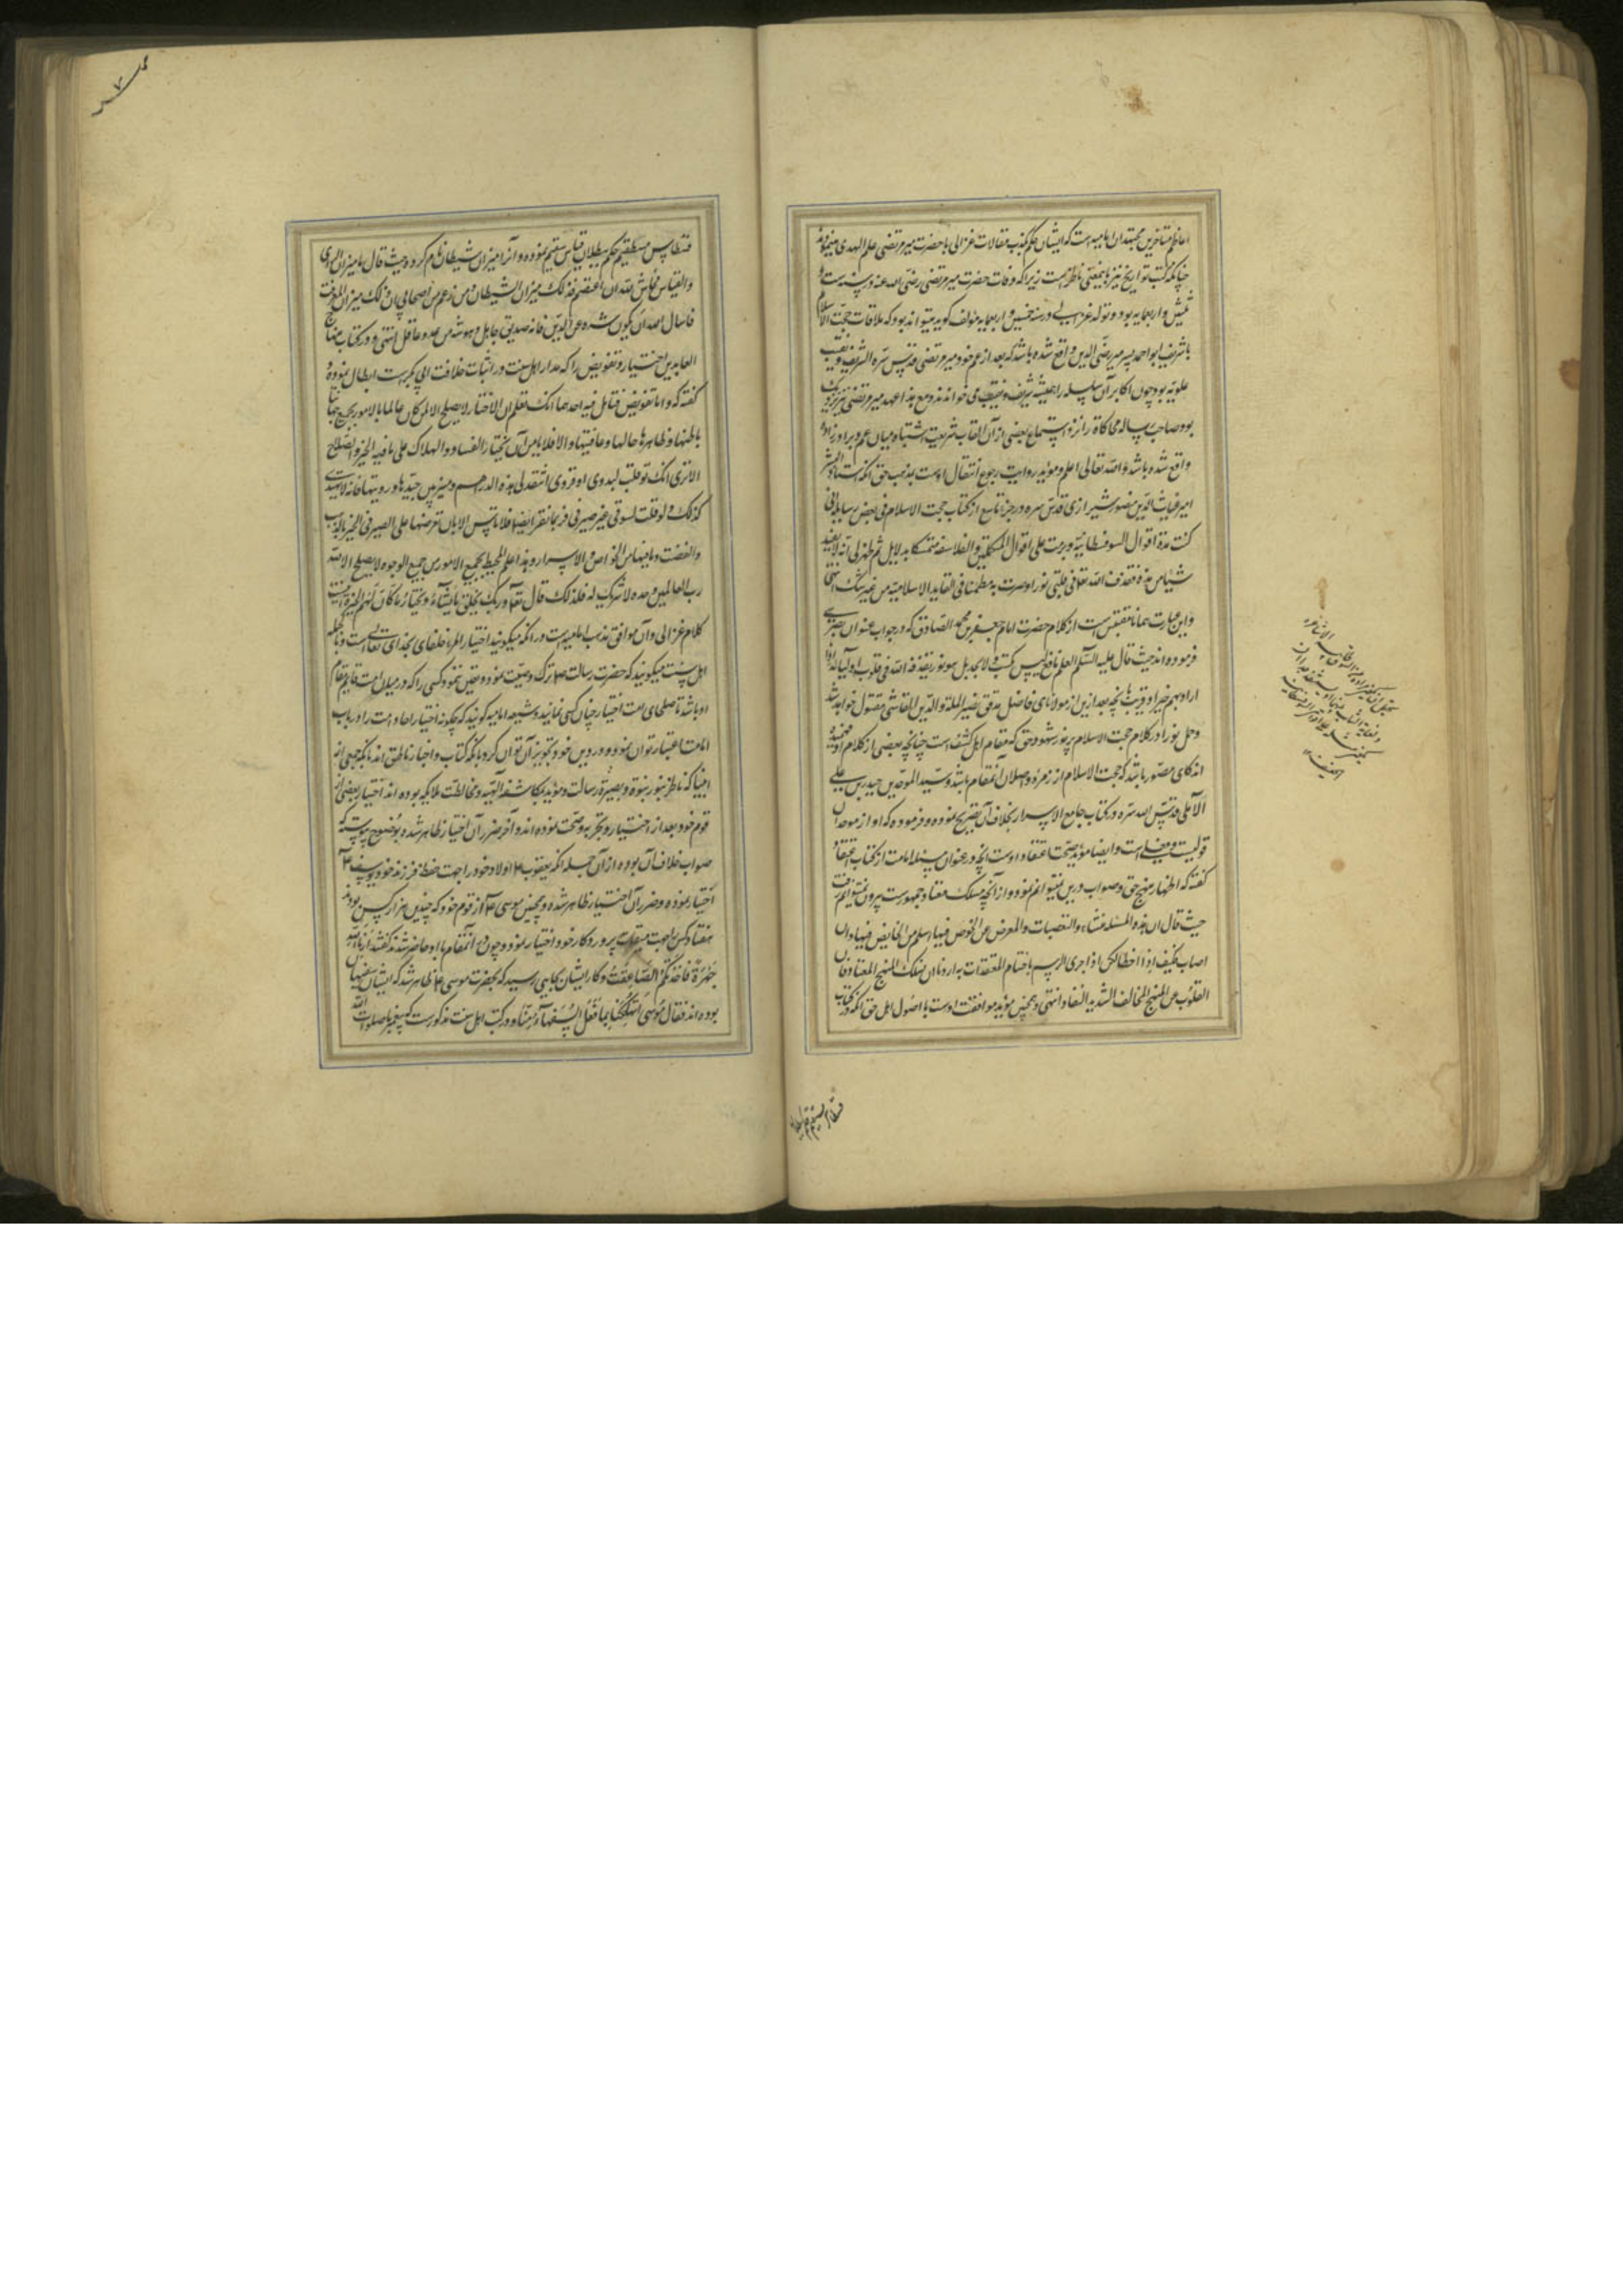 اعاظم متأخرین مجتهدان امامیه است که ایشان حکم بکذب مقالات غزالی با حضرت میر مرتضی علم الهدی مینمودند
چنانکه کتب تواریخ نیز باینمعنی ناطق است زیرا که وفات حضرت میر مرتضی رضی الله عنه در سنه ست و
ثلثین و اربعمایه بود و تولد غزالی در سنه خمسین و اربعمایه مؤلف گوید میتواند بود که ملاقات حجت الاسلام
با شریف ابو احمد پسر میر رضی الدین واقع شده باشد که بعد از عم خود میر مرتضی قدس سره الشریف نقیب
علویه بود چون اکابر آن سلسله را همیشه شریف و نقیب می خواندند و مع هذا عهد میر مرتضی نیز نزدیک
بود صاحب رساله محاکاة را از استماع بعضی از آن القاب شریفه اشتباه میان عم و برادرزاده
واقع شده باشد والله تعالی اعلم و مؤید روایت رجوع و انتقال اوست بمذهب حق آنکه استاد البشر
امیر غیاث الدین منصور شیرازی قدس سره در جزء تاسع از کتاب حجت الاسلام فی بعض رسایله انی
کنت مدة اقوال السوفسطائیة ومررت علی اقوال المتکلمین و الفلاسفة متمسکا بدلایل ثم ظهر لی انه لا یفید
شیئا من هذه فقذف الله تعالی فی قلبی نورا وصرت به مطمئنا فی العقاید الاسلامیة من غیر شک انتهی
و این عبارت بعینها مقتبس است از کلام حضرت امام جعفر بن محمد الصادق که در جواب عنوان بصری
فرموده اند حیث قال علیه السلام العلم النافع لیس بکسب ولا بجدل بل هو نور یقذفه الله فی قلوب اولیائه اذا
اراد بهم خیرا و قریب باینچه بعد ازین از مولانای فاضل مدقق نصیر الملة والدین القاشی منقول خواهد شد
وحمل نور در کلام حجت الاسلام بر نور شهود حق که مقام اهل کشف است چنانچه بعضی از کلام او فهمیده
اند گاهی متصور باشد که حجت الاسلام از زمره واصلان آنمقام باشد و سید الموحدین حیدر بن علی
الآملی قدس الله سره در کتاب جامع الاسرار بخلاف آن تصریح نموده و فرموده که او از موحدان
قولیست و فعلی است و ایضا مؤید صحت اعتقاد اوست آنچه در عنوان مسئله امامت از کتاب اعتقاد
گفته که اظهار منهج حق و صواب درین نمیتوانم نمود و از آنچه مسلک معتاد جمهورست بیرون نمیتوانم رفت
حیث قال ان هذه المسئلة منشاء التعصبات والمعرض عن الخوض فیها اسلم من الخایض فیها وان
اصاب فکیف اذا اخطأ لکن اذا جری الرسم باختتام المعتقدات به اردنا ان نسلک المنهج المعتاد فان
القلوب عن المنهج المخالف الشدید النفار انتهی و همچنین مؤید موافقت اوست با اصول اهل حق آنکه در کتاب
قسطاس مستقیم حکم ببطلان
قسطاس مستقیم حکم ببطلان قیاس سقیم نموده و آنرا میزان شیطان نام کرده حیث قال ما میزان الرأی
والقیاس فحاش لله ان اعتصم فذلک میزان الشیطان ومن زعم من اصحابی ان ذلک میزان المعرفة
فاسأل الله ان یکون شره عن الدین فانه صدیق جاهل وهو شر من عدو عاقل انتهی و در کتاب منهاج
العابدین اختیار و تفویض را که مدار اهل سنت در اثبات خلافت ابی بکرست ابطال نموده و
گفته که واما تفویض فتأمل فیه احدهما انک تعلم ان الاختیار لا یصلح الا لمن کان عالما بالامور بجمیع جهاتها
باطنها وظاهرها حالها وعاقبتها والا فلا یأمن ان یختار الفساد والهلاک علی ما فیه الخیر والصلاح
الا تری انک لو قلت لبدوی او قروی انتقد لی هذه الدراهم ومیز بین جیدها وردیها فانه لا یهتدی
لذلک ولو قلت لسوقی غیر صیرفی فربما تعسر ایضا فلا تأمن الا بان تعرضها علی الصیرفی الخبیر بالذهب
والفضة وما فیها من الخواص والاسرار وهذا العلم المحیط بجمیع الامور من جمیع الوجوه لا یصلح الا لله
رب العالمین وحده لا شریک له فلذلک قال تعالی وربک یخلق ما یشاء ویختار ما کان لهم الخیرة انتهی
کلام غزالی و آن موافق مذهب امامیه است در آنکه میگویند اختیار امراء خلفای بخدای تعالی است و بالجمله
اهل سنت میگویند که حضرت رسالت ص ترک وصیت نمود و تعیین ننمود کسی را که در میان امت قایم مقام
او باشد تا صلحای امت اختیار چنان کسی نمایند و شیعه امامیه گویند که چگونه اختیار احاد امت را در باب
امامت اعتبار توان نمود و در دین خود تجویز آن توان کرد با آنکه کتاب و اخبار ناطق اند بآنکه جمعی از
انبیا که ناظر بنور نبوة و بصیرة رسالت و مؤید بمکاشفه الهیه و مخالطت ملایکه بوده اند اختیار بعضی از
قوم خود بعد از اختیار و تجربه و صحت نموده اند و آخر ضرر آن اختیار ظاهر شده بوضوح پیوسته که
صواب خلاف آن بوده از آن جمله آنکه یعقوب ع اولاد خود را جهت حفظ فرزند خود یوسف ع
اختیار نموده و ضرر آن اختیار ظاهر شده و همچنین موسی ع از قوم خود که چندین هزار کس بودند
هفتاد کس را جهت میقات پروردکار خود اختیار نمود و چون در آنمقام با او حاضر شدند گفتند ارنا الله
جهرة فاخذتکم الصاعقة و کار ایشان بجایی رسید که بحضرت موسی ع ظاهر شد که ایشان سفیهان
بوده اند فقال موسی اتهلکنا بما فعل السفهاء منا و در کتب اهل سنت مذکورست که پیغمبر صلوات الله